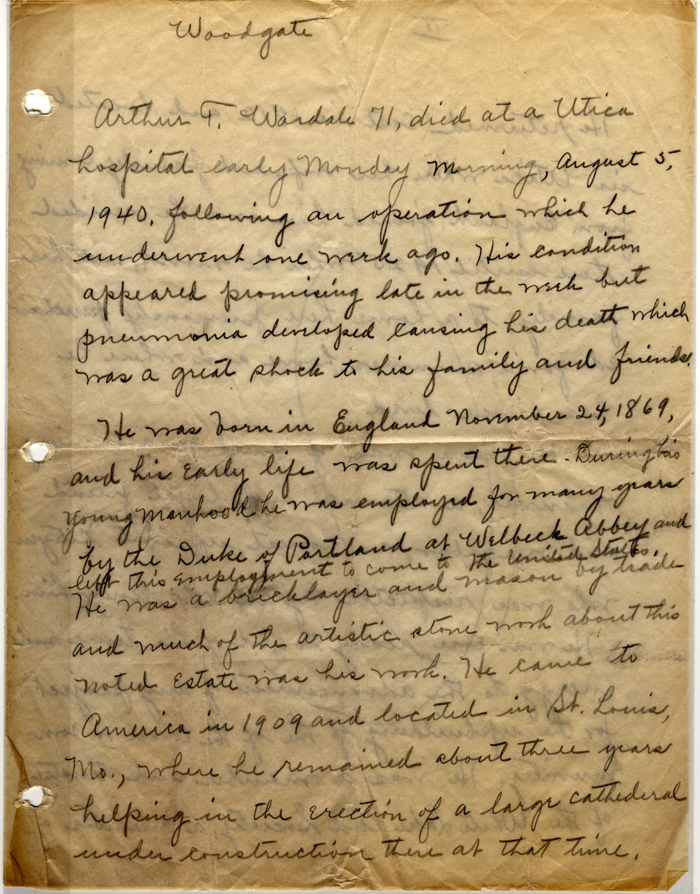 Woodgate
Arthur T. Wardale 71, died at a Utica
hospital early Monday Morning, August 5,
1940, following an operation which he
underwent one week ago. His condition
appeared promising late in the week but
pneumonia developed causing his death which
was a great shock to his family and friends.
He was born in England November 24, 1869,
and his early life was spent there. During his
young manhood he was employed for many years
by the Duke of Portland at Welbeck Abbey and
left this employment to come to the United States.
He was a bricklayer and mason by trade
and much of the artistic stone work about this
noted Estate was his work. He came to
America in 1909 and located in St. Louis,
Mo., where he remained about three years
helping in the erection of a large cathederal
under construction there at that time.